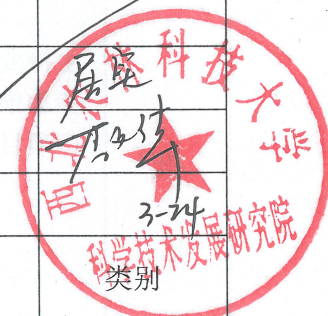 西北农林科技大学
属实
3-24
科学技术发展研究院
类别